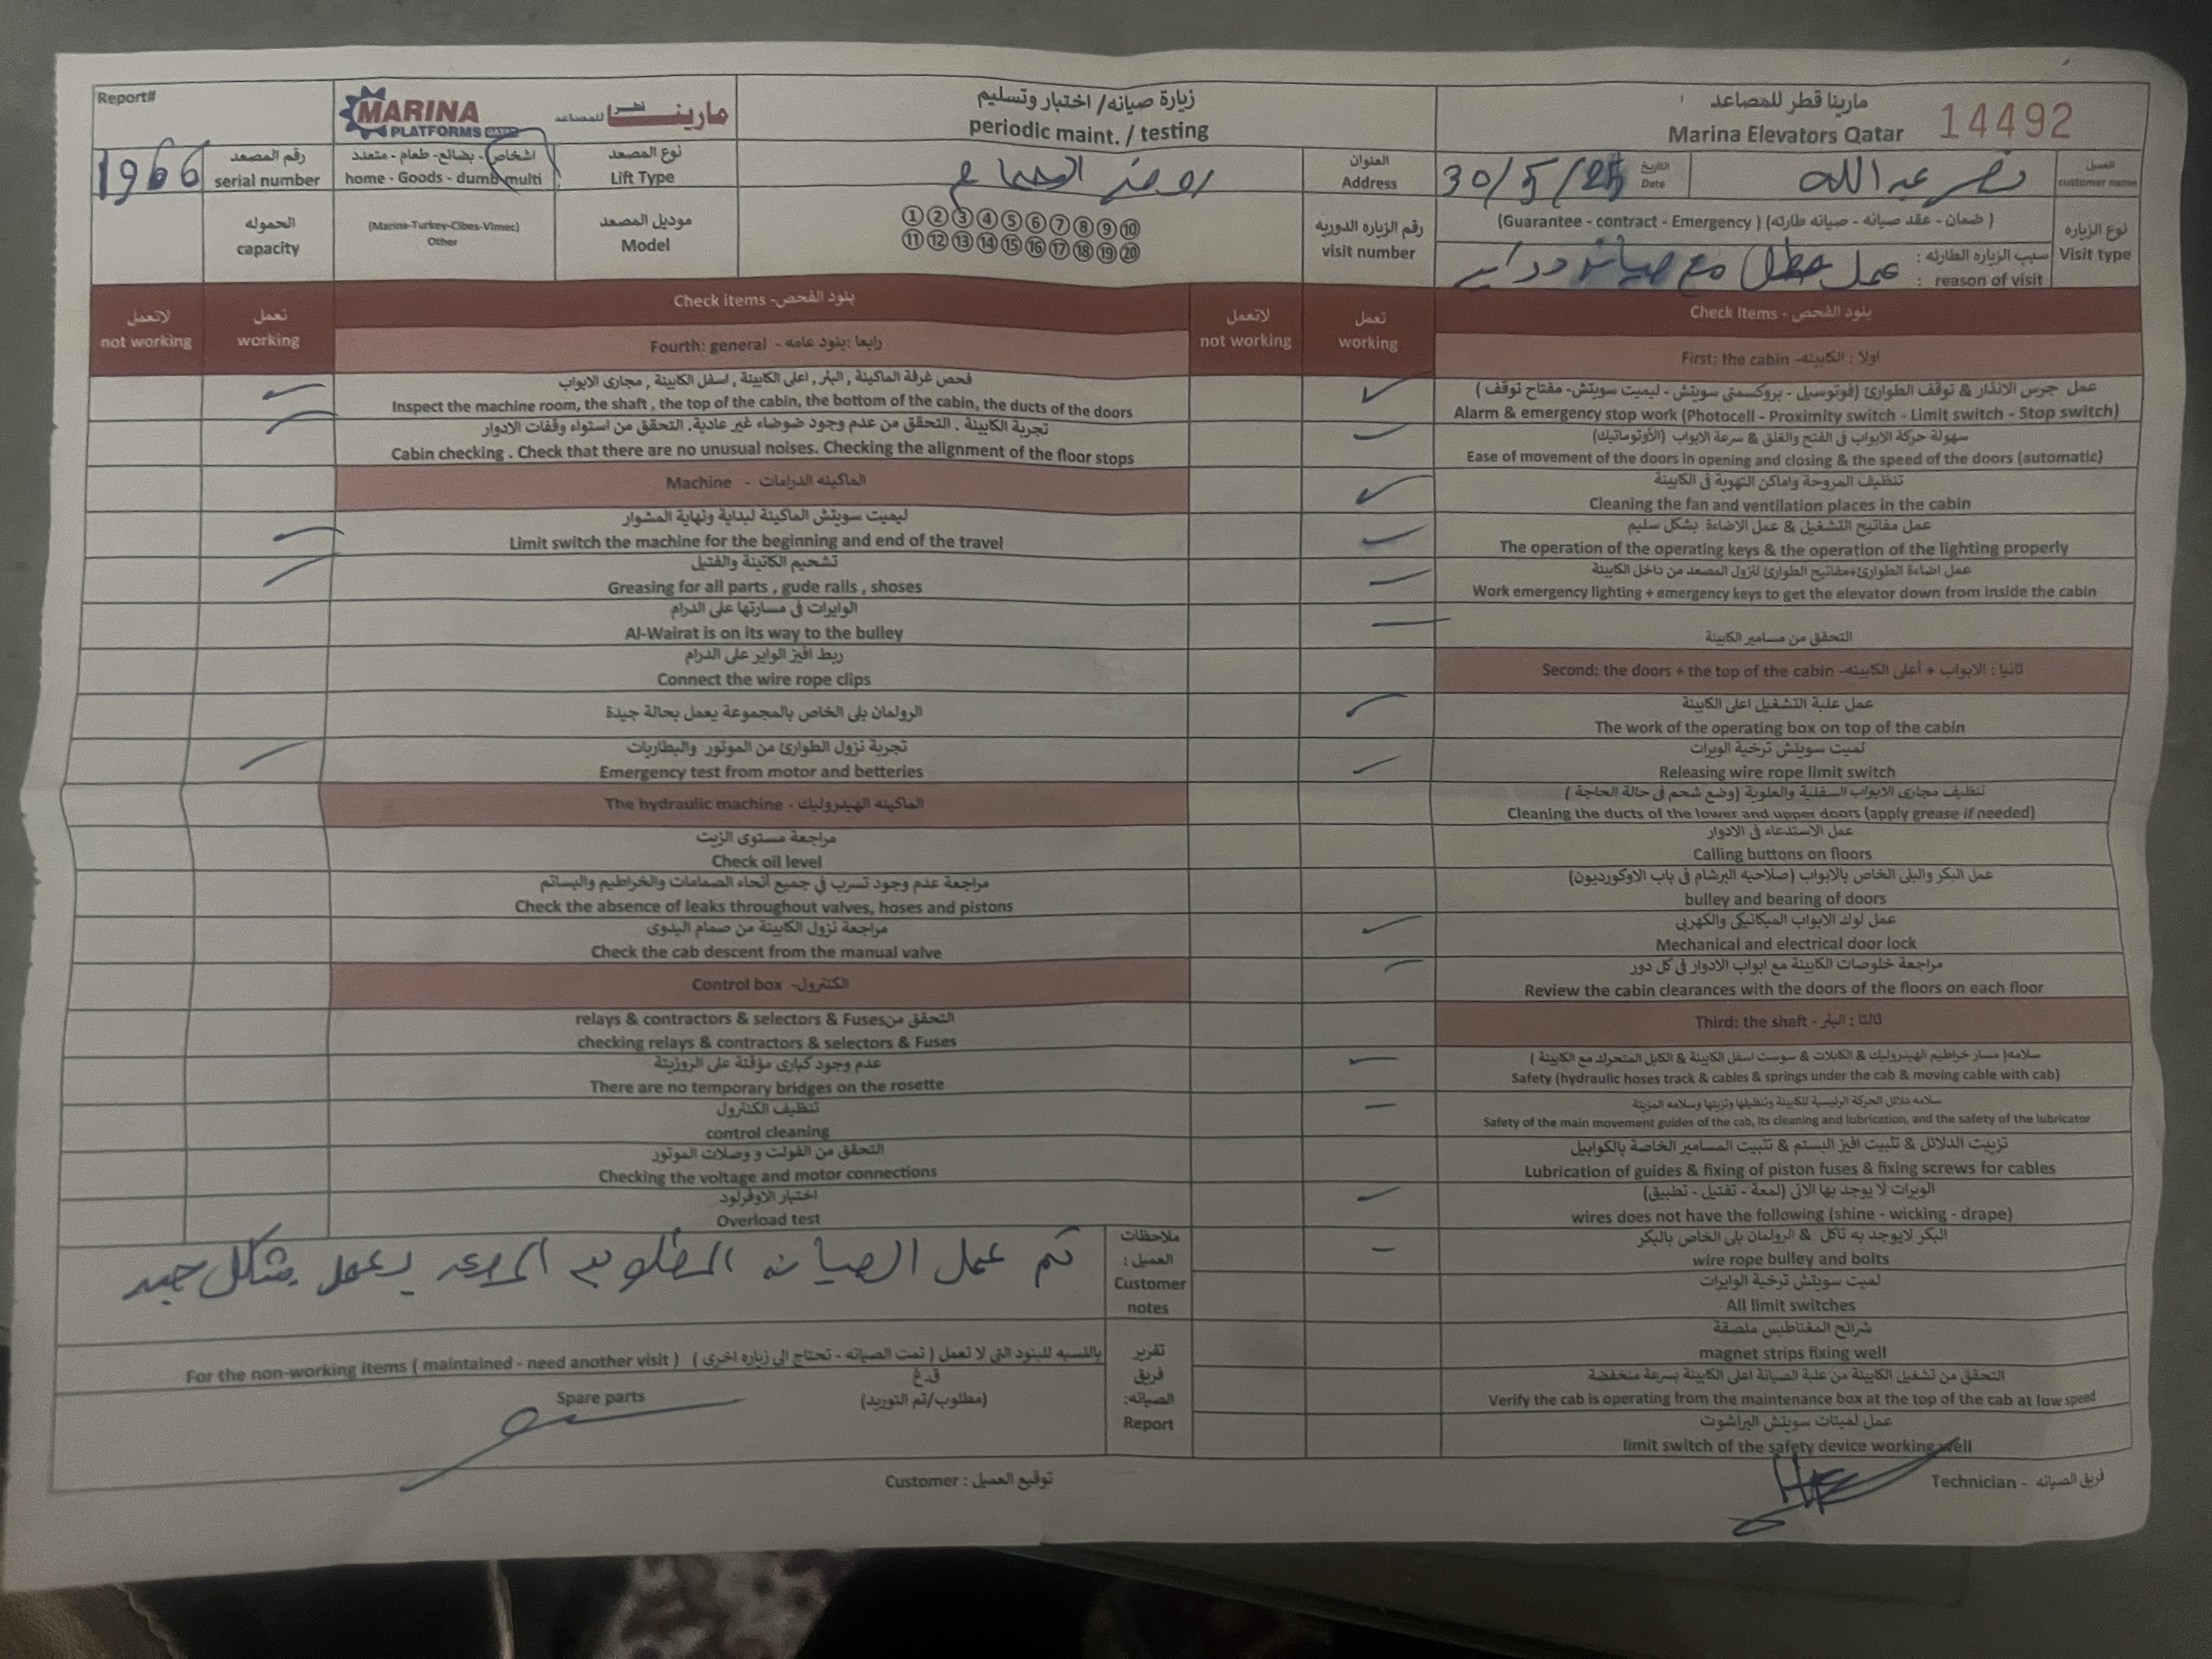 Report#
MARINA
PLATFORMS QATAR
مارينا قطر للمصاعد
زيارة صيانه/ اختبار وتسليم
periodic maint. / testing
مارينا قطر للمصاعد
Marina Elevators Qatar
14492
1966
رقم المصعد
serial number
اشخاص - بضائع - طعام - متعدد
home - Goods - dumb multi
نوع المصعد
Lift Type
العنوان
Address
30/5/25
التاريخ
Date
عبد الله
العميل
customer name
الحموله
capacity
(Marina-Turkey-Cibes-Vimec)
Other
موديل المصعد
Model
① ② ③ ④ ⑤ ⑥ ⑦ ⑧ ⑨ ⑩
⑪ ⑫ ⑬ ⑭ ⑮ ⑯ ⑰ ⑱ ⑲ ⑳
رقم الزياره الدوريه
visit number
(Guarantee - contract - Emergency ) (ضمان - عقد صيانه - صيانه طارئه )
سبب الزياره الطارئه :
reason of visit :
عمل عطل مع صيانه
نوع الزياره
Visit type
لاتعمل
not working
تعمل
working
بنود الفحص- Check items
رابعا :بنود عامه - Fourth: general
فحص غرفة الماكينة , البئر , اعلى الكابينة , اسفل الكابينة , مجارى الابواب
Inspect the machine room, the shaft , the top of the cabin, the bottom of the cabin, the ducts of the doors
تجربة الكابينة . التحقق من عدم وجود ضوضاء غير عادية. التحقق من استواء وقفات الادوار
Cabin checking . Check that there are no unusual noises. Checking the alignment of the floor stops
الماكينه الدرامات - Machine
ليميت سويتش الماكينة لبداية ونهاية المشوار
Limit switch the machine for the beginning and end of the travel
تشحيم الكاتينة والفتيل
Greasing for all parts , gude rails , shoses
الوايرات فى مسارتها على الدرام
Al-Wairat is on its way to the bulley
ربط افيز الواير على الدرام
Connect the wire rope clips
الرولمان بلى الخاص بالمجموعة يعمل بحالة جيدة
تجربة نزول الطوارئ من الموتور والبطاريات
Emergency test from motor and betteries
الماكينه الهيدروليك - The hydraulic machine
مراجعة مستوى الزيت
Check oil level
مراجعة عدم وجود تسرب في جميع أنحاء الصمامات والخراطيم والبساتم
Check the absence of leaks throughout valves, hoses and pistons
مراجعة نزول الكابينة من صمام اليدوى
Check the cab descent from the manual valve
الكنترول- Control box
التحقق من relays & contractors & selectors & Fuses
checking relays & contractors & selectors & Fuses
عدم وجود كبارى مؤقتة على الروزيتة
There are no temporary bridges on the rosette
تنظيف الكنترول
control cleaning
التحقق من الفولت و وصلات الموتور
Checking the voltage and motor connections
اختبار الاوفرلود
Overload test
لاتعمل
not working
تعمل
working
بنود الفحص - Check Items
اولا : الكابينه- First: the cabin
عمل جرس الانذار & توقف الطوارئ (فوتوسيل - بروكسمتى سويتش - ليميت سويتش- مفتاح توقف )
Alarm & emergency stop work (Photocell - Proximity switch - Limit switch - Stop switch)
سهولة حركة الابواب فى الفتح والغلق & سرعة الابواب (الأوتوماتيك)
Ease of movement of the doors in opening and closing & the speed of the doors (automatic)
تنظيف المروحة واماكن التهوية فى الكابينة
Cleaning the fan and ventilation places in the cabin
عمل مفاتيح التشغيل & عمل الاضاءة بشكل سليم
The operation of the operating keys & the operation of the lighting properly
عمل اضاءة الطوارئ+مفاتيح الطوارئ لنزول المصعد من داخل الكابينة
Work emergency lighting + emergency keys to get the elevator down from inside the cabin
التحقق من مسامير الكابينة
ثانيا : الابواب + أعلى الكابينه- Second: the doors + the top of the cabin
عمل علبة التشغيل اعلى الكابينة
The work of the operating box on top of the cabin
لميت سويتش ترخية الويرات
Releasing wire rope limit switch
تنظيف مجارى الابواب السفلية والعلوية (وضع شحم فى حالة الحاجة )
Cleaning the ducts of the lower and upper doors (apply grease if needed)
عمل الاستدعاء فى الادوار
Calling buttons on floors
عمل البكر والبلى الخاص بالابواب (صلاحيه البرشام فى باب الاوكورديون)
bulley and bearing of doors
عمل لوك الابواب الميكانيكى والكهربى
Mechanical and electrical door lock
مراجعة خلوصات الكابينة مع ابواب الادوار فى كل دور
Review the cabin clearances with the doors of the floors on each floor
ثالثا : البئر - Third: the shaft
سلامه( مسار خراطيم الهيدروليك & الكابلات & سوست اسفل الكابينة & الكابل المتحرك مع الكابينة )
Safety (hydraulic hoses track & cables & springs under the cab & moving cable with cab)
سلامه دلائل الحركة الرئيسية للكابينة وتنظيفها وتزيتها وسلامه المزيتة
Safety of the main movement guides of the cab, its cleaning and lubrication, and the safety of the lubricator
تزييت الدلائل & تثبيت افيز البستم & تثبيت المسامير الخاصة بالكوابيل
Lubrication of guides & fixing of piston fuses & fixing screws for cables
الويرات لا يوجد بها الاتى (لمعة - تفتيل - تطبيق)
wires does not have the following (shine - wicking - drape)
البكر لايوجد به تآكل & الرولمان بلى الخاص بالبكر
wire rope bulley and bolts
لميت سويتش ترخية الوايرات
All limit switches
شرائح المغناطيس ملصقة
magnet strips fixing well
التحقق من تشغيل الكابينة من علبة الصيانة اعلى الكابينة بسرعة منخفضة
Verify the cab is operating from the maintenance box at the top of the cab at low speed
عمل لميتات سويتش البراشوت
limit switch of the safety device working well
ملاحظات العميل :
Customer notes
تم عمل الصيانه المطلوبه المصعد يعمل بشكل جيد
تقرير فريق الصيانه:
Report
بالنسبه للبنود التى لا تعمل ( تمت الصيانه - تحتاج الى زياره اخرى ) For the non-working items ( maintained - need another visit )
ق.غ
Spare parts
(مطلوب/تم التوريد)
توقيع العميل : Customer
فريق الصيانه - Technician